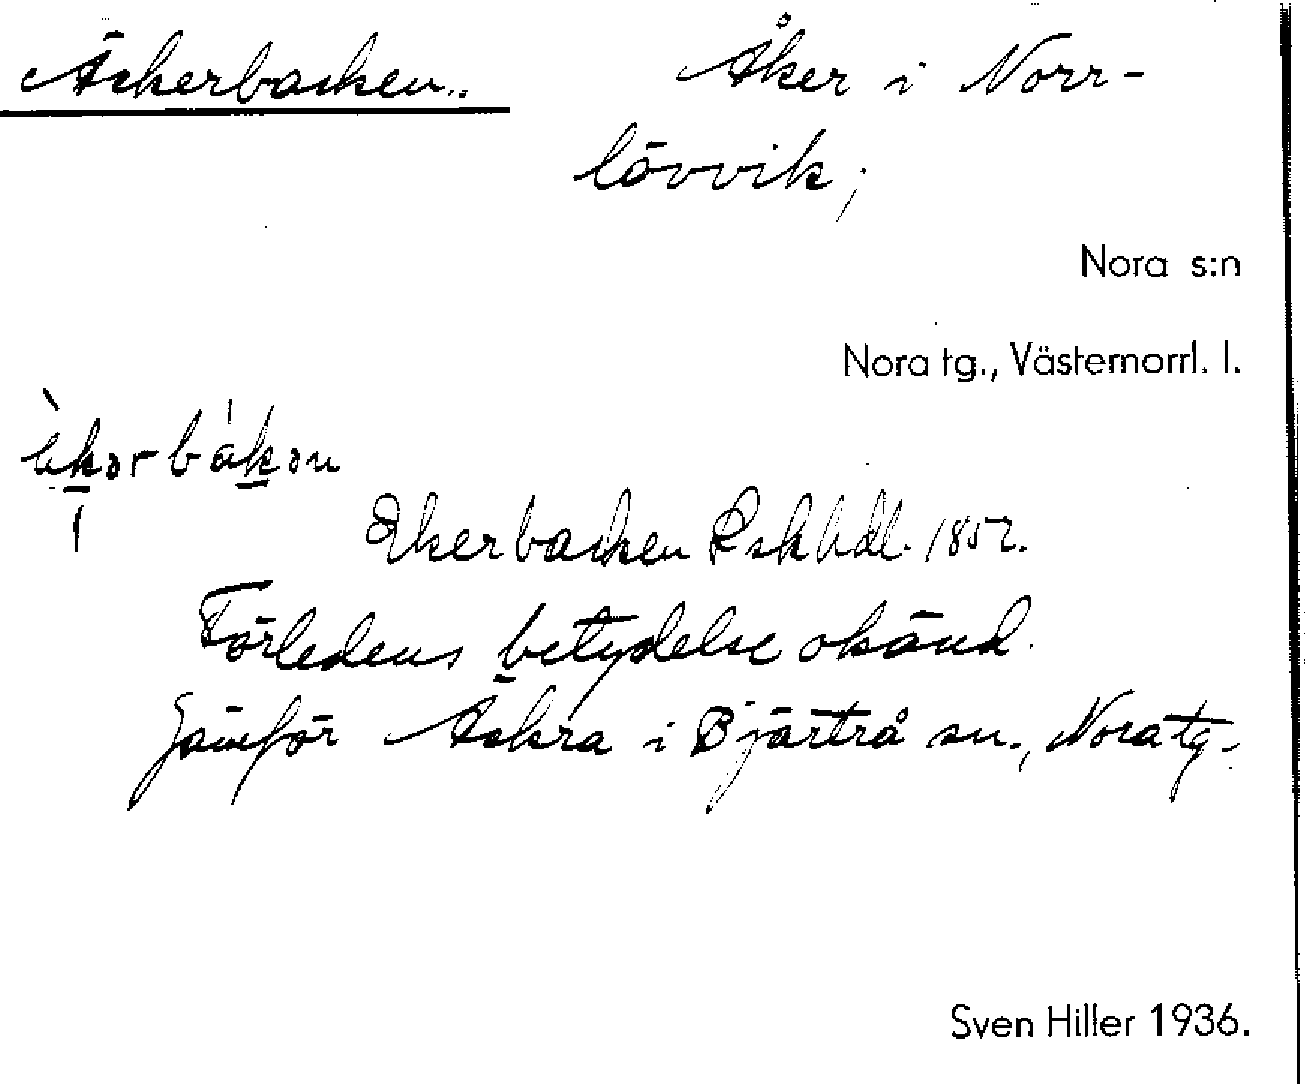 Äckerbacken.. Åker i Norr-
lövvik;
Nora s:n
Nora tg., Västernorrl. l.
Ekerbacken Rskhdl. 1852.
Förledens betydelse okänd.
Jämför Äskra i Bjärtrå sn., Nora tg.
Sven Hiller 1936.